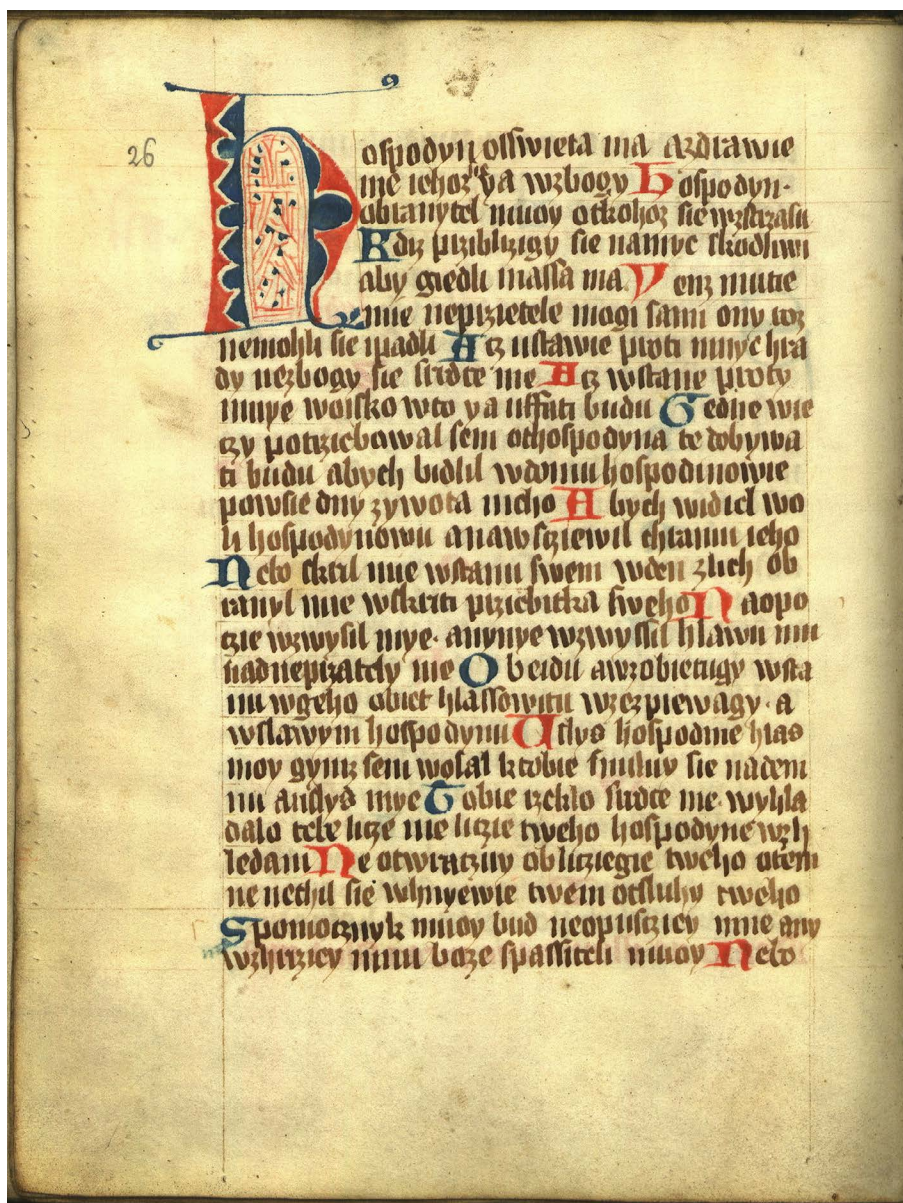 26
Hospodyn osswieta ma azdrawie
me iehoz sya wzbogy Hospodyn
obranytel mnoy otkohoz sie wzstrasu
Kdiz prziblizigy sie namye skodliwi
aby giedli massa ma Y genz mutie
mne neprzietele mogi sami ony toz
nemohli sie ipadli Acz ustawie proti mnye hra
dy nezbogy sie sirdce me Acz wstane proty
mnye woisko wto ya uffati budu Gedne wie
czy potrziebowal sem othospodyna te dobywa
ti budu abych bidlil wdomu hospodinowie
powsie dny zywota meho Abych widiel wo
li hospodynowu anawscziewil chramu ieho
Nebo skril mne wstanu swem wden zlich ob
ranyl mne wskriti prziebitka sweho Naopo
cze wzwysil mye anynye wzwyssil hlawu mu
nadneprzately me Obeidu awzobietugy wsta
nu wgeho obiet hlassowitu wzezpiewagy a
wslawym hospodynu Uslys hospodine hlas
moy gymz sem wolal ktobie smiluy sie nadem
nu auslys mye Tobie rzeklo sirdce me wyhla
dalo tebe licze me liczie tweho hospodyne wzh
ledam Ne otwraczuy oblicziegie tweho otem
ne nechil sie whnyewie twem otsluhy tweho
Spomocznyk mnoy bud neopusczicy mne any
wzhrzicy mnu boze spassiteli mnoy Nebo